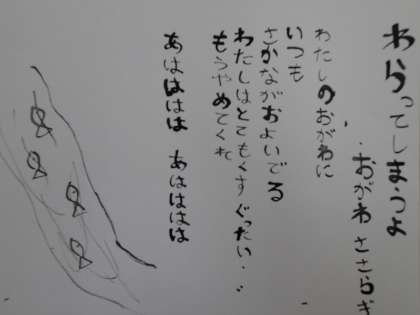 わらってしまうよ
・おがわ ささらぎ
わたしのおがわに
いつも
さかながおよいでる
わたしはとてもくすぐったい・・
もうやめてくれ
あはははは あはははは